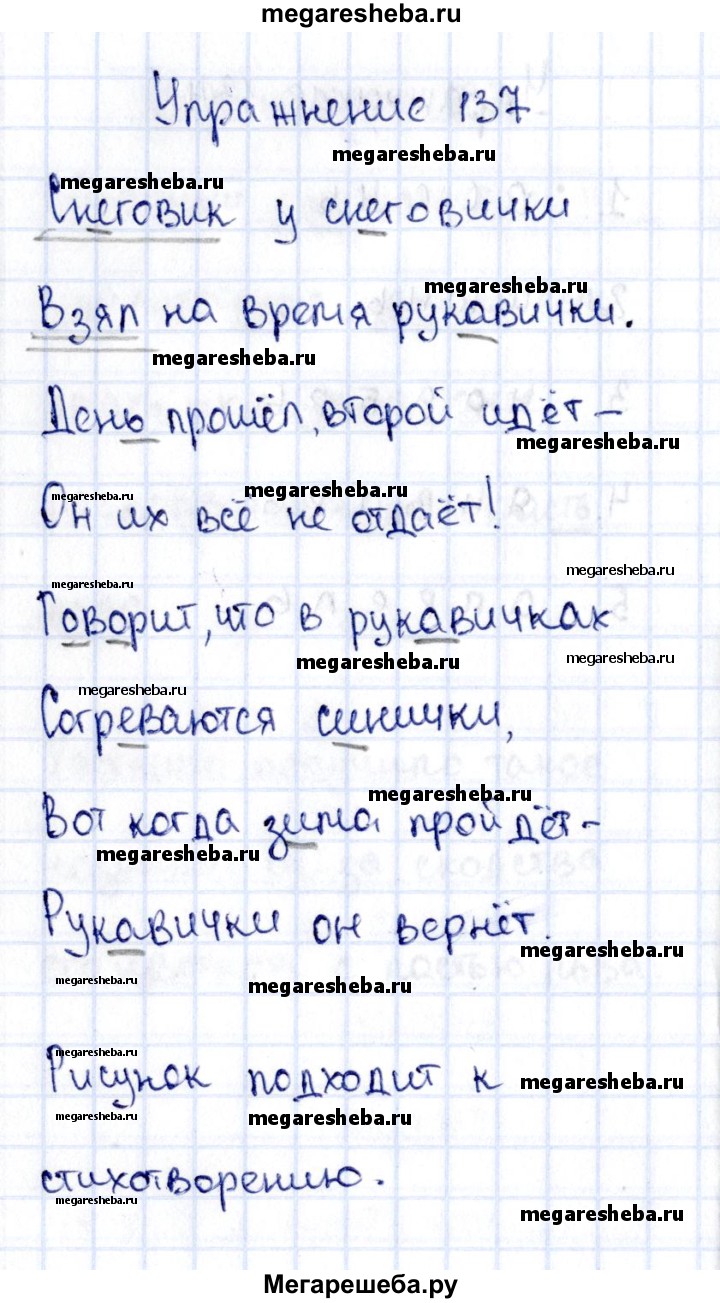 megaresheba.ru
Упражнение 137
megaresheba.ru
megaresheba.ru
Снеговик у снеговички
megaresheba.ru
Взял на время рукавички.
megaresheba.ru
День прошёл, второй идёт –
megaresheba.ru
megaresheba.ru
megaresheba.ru
Он их всё не отдаёт!
megaresheba.ru
megaresheba.ru
Говорит, что в рукавичках
megaresheba.ru
megaresheba.ru
megaresheba.ru
Согреваются синички,
megaresheba.ru
Вот когда зима пройдёт –
megaresheba.ru
Рукавички он вернёт.
megaresheba.ru
megaresheba.ru
megaresheba.ru
megaresheba.ru
Рисунок подходит к
megaresheba.ru
megaresheba.ru
megaresheba.ru
стихотворению.
megaresheba.ru
megaresheba.ru
Мегарешеба.ру